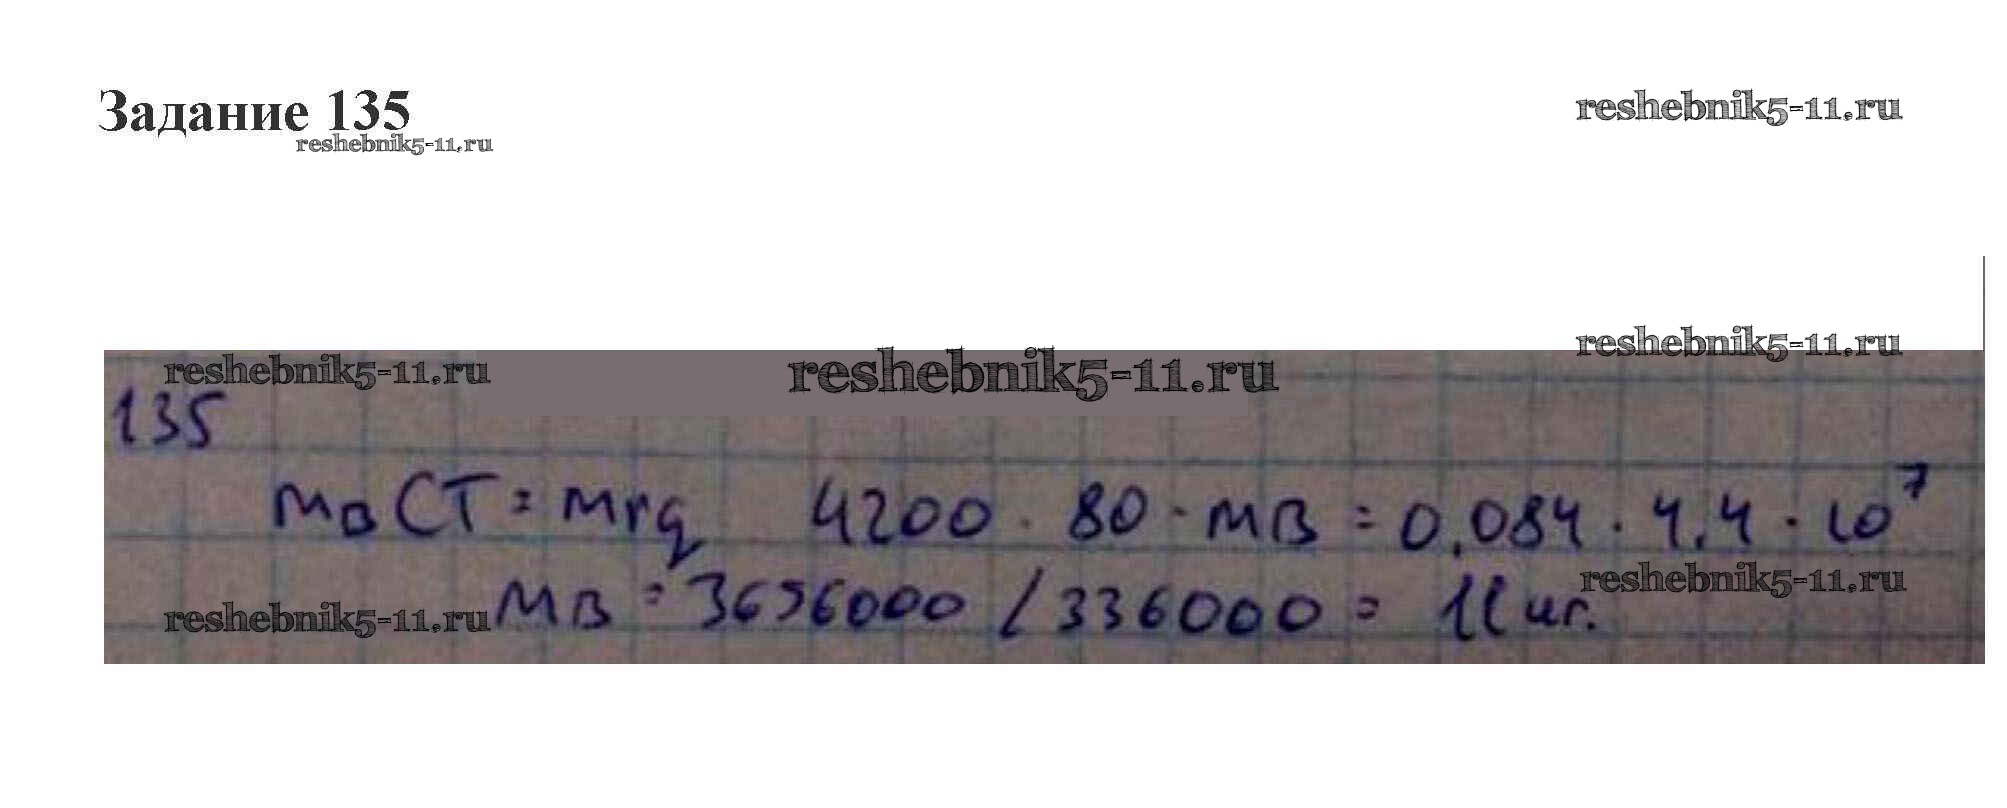 Задание 135
reshebnik5-11.ru
reshebnik5-11.ru
reshebnik5-11.ru
reshebnik5-11.ru
reshebnik5-11.ru
135
mв CT = mгq 4200 · 80 · mв = 0,084 · 4,4 · 10⁷
reshebnik5-11.ru
reshebnik5-11.ru
mв = 3696000 / 336000 = 11 кг.